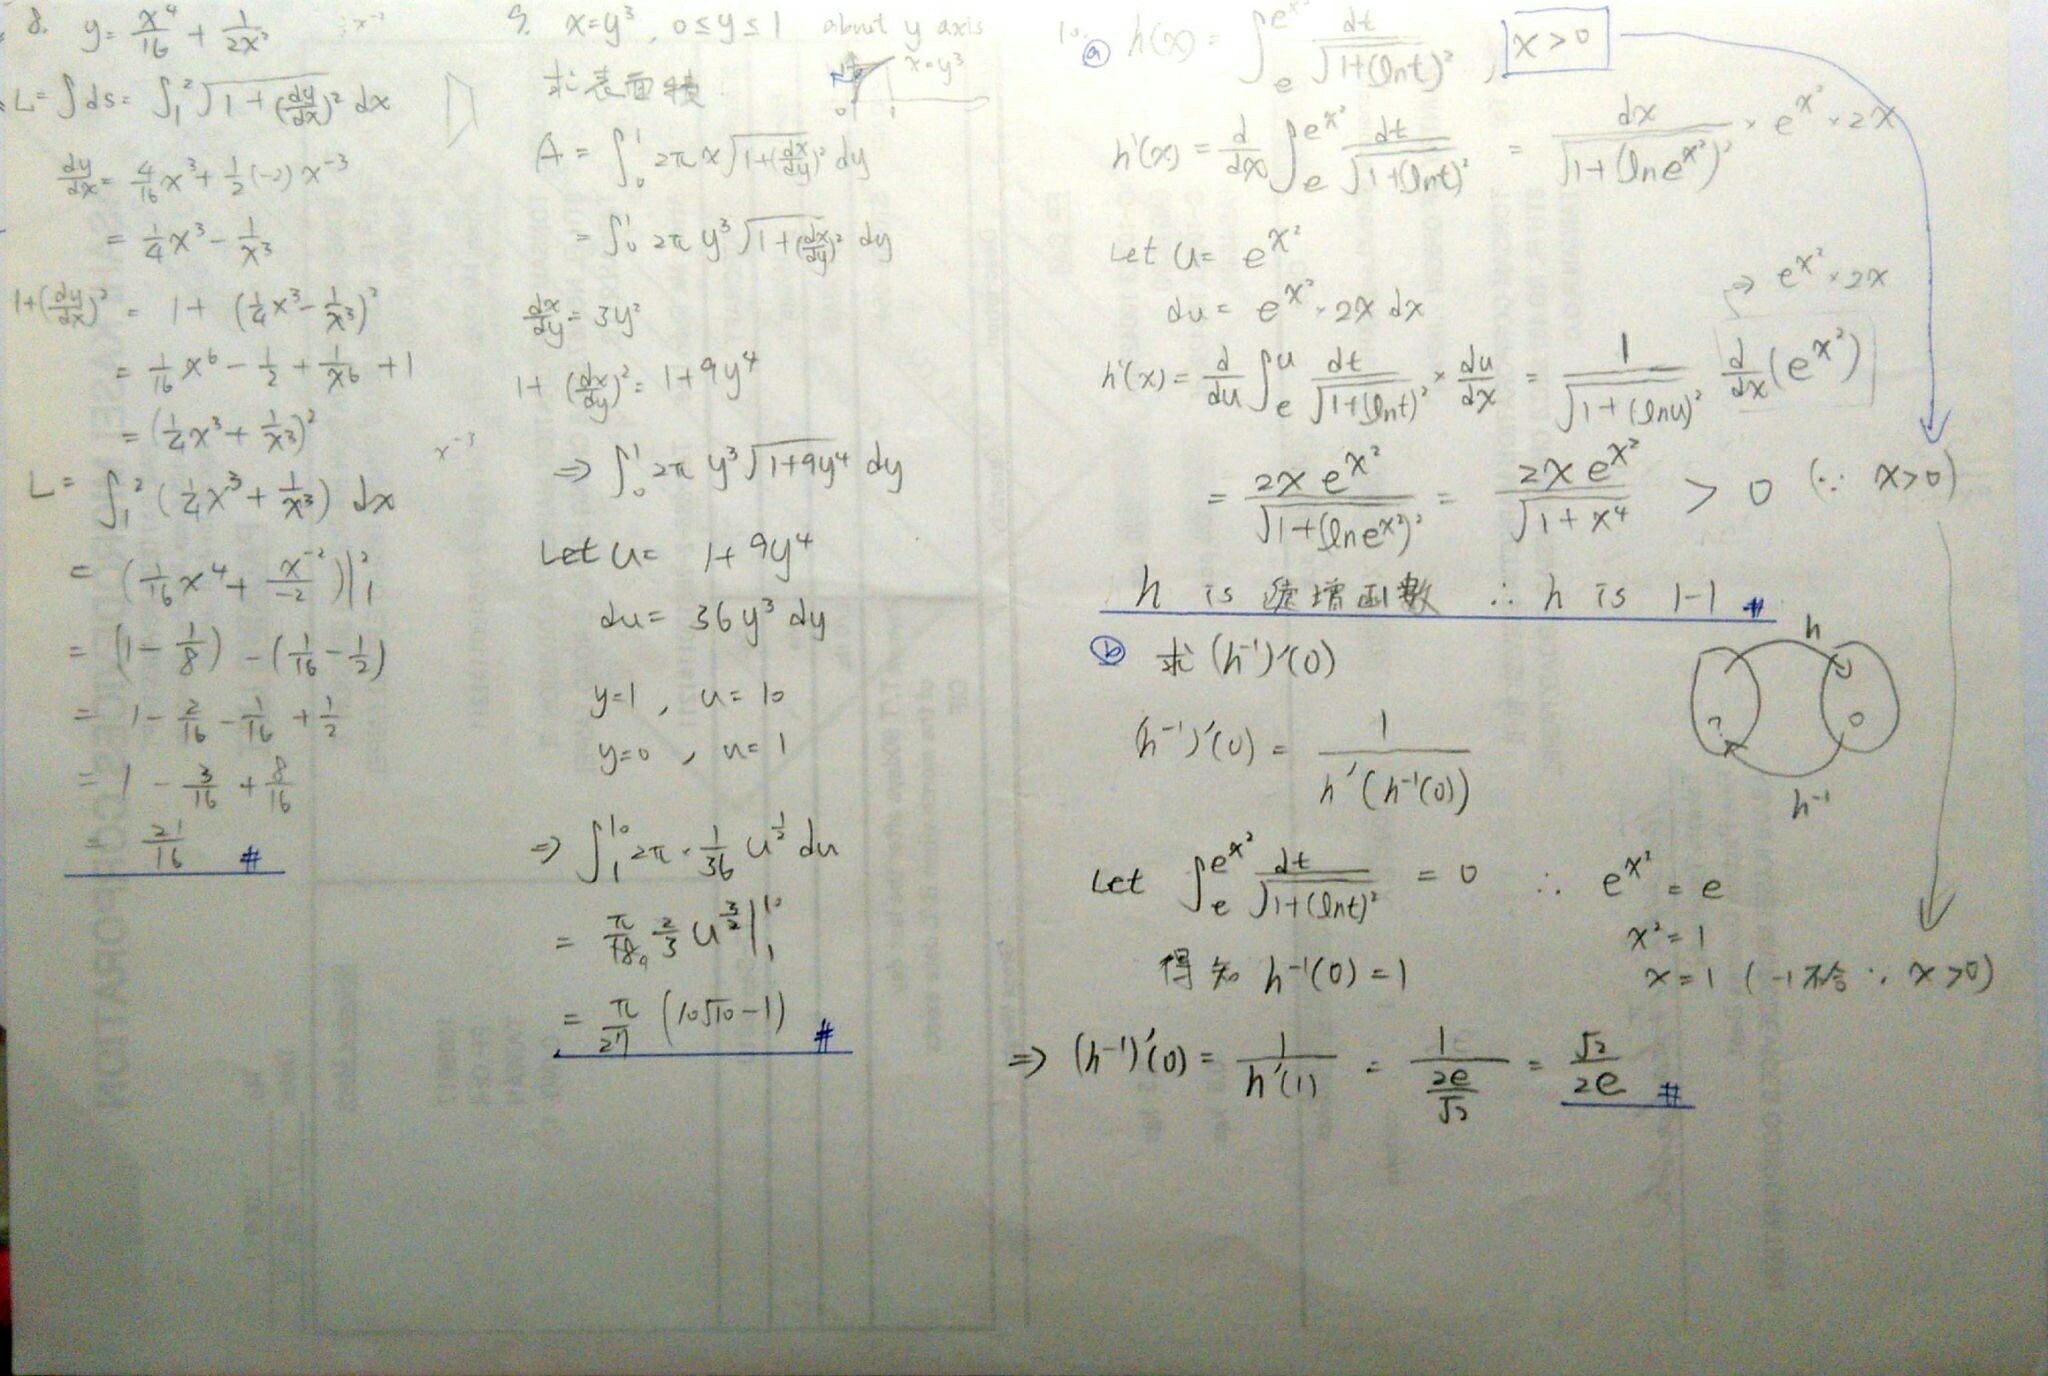 8. y = x⁴/16 + 1/2x²
∴x⁻²
L = ∫ds = ∫₁² √(1+(dy/dx)²) dx
dy/dx = 4/16 x³ + 1/2 (-2) x⁻³
= 1/4 x³ - 1/x³
1+(dy/dx)² = 1+ (1/4 x³ - 1/x³)²
= 1/16 x⁶ - 1/2 + 1/x⁶ + 1
= (1/4 x³ + 1/x³)²
x⁻³
L = ∫₁² (1/4 x³ + 1/x³) dx
= (1/16 x⁴ + x⁻²/-2)|₁²
= (1 - 1/8) - (1/16 - 1/2)
= 1 - 2/16 - 1/16 + 1/2
= 1 - 3/16 + 8/16
= 21/16 #
9. x=y³, 0≤y≤1 about y axis
求表面積
x=y³
0 1
A = ∫₀¹ 2πx √(1+(dx/dy)²) dy
= ∫₀¹ 2π y³ √(1+(dx/dy)²) dy
dx/dy = 3y²
1+ (dx/dy)² = 1+9y⁴
⇒ ∫₀¹ 2π y³ √(1+9y⁴) dy
Let u = 1+9y⁴
du = 36y³ dy
y=1, u=10
y=0, u=1
⇒ ∫₁¹⁰ 2π · 1/36 u^(1/2) du
= π/18₉ 2/3 u^(3/2)|₁¹⁰
= π/27 (10√10 - 1) #
10.
ⓐ h(x) = ∫ₑ^(e^x²) dt/√(1+(lnt)²), x>0
h'(x) = d/dx ∫ₑ^(e^x²) dt/√(1+(lnt)²) = dx/√(1+(lne^x²)²) × e^x² × 2x
Let u = e^x²
du = e^x² · 2x dx
→ e^x² · 2x
h'(x) = d/du ∫ₑ^u dt/√(1+(lnt)²) × du/dx = 1/√(1+(lnu)²) d/dx (e^x²)
= 2x e^x²/√(1+(lne^x²)²) = 2x e^x²/√(1+x⁴) > 0 (∵ x>0)
h is 遞增函數 ∴ h is 1-1 #
ⓑ 求 (h⁻¹)'(0)
h
? 0
h⁻¹
(h⁻¹)'(0) = 1/h'(h⁻¹(0))
Let ∫ₑ^(e^x²) dt/√(1+(lnt)²) = 0 ∴ e^x² = e
x² = 1
得知 h⁻¹(0) = 1
x = 1 (-1不合 ∵ x>0)
⇒ (h⁻¹)'(0) = 1/h'(1) = 1/(2e/√2) = √2/2e #